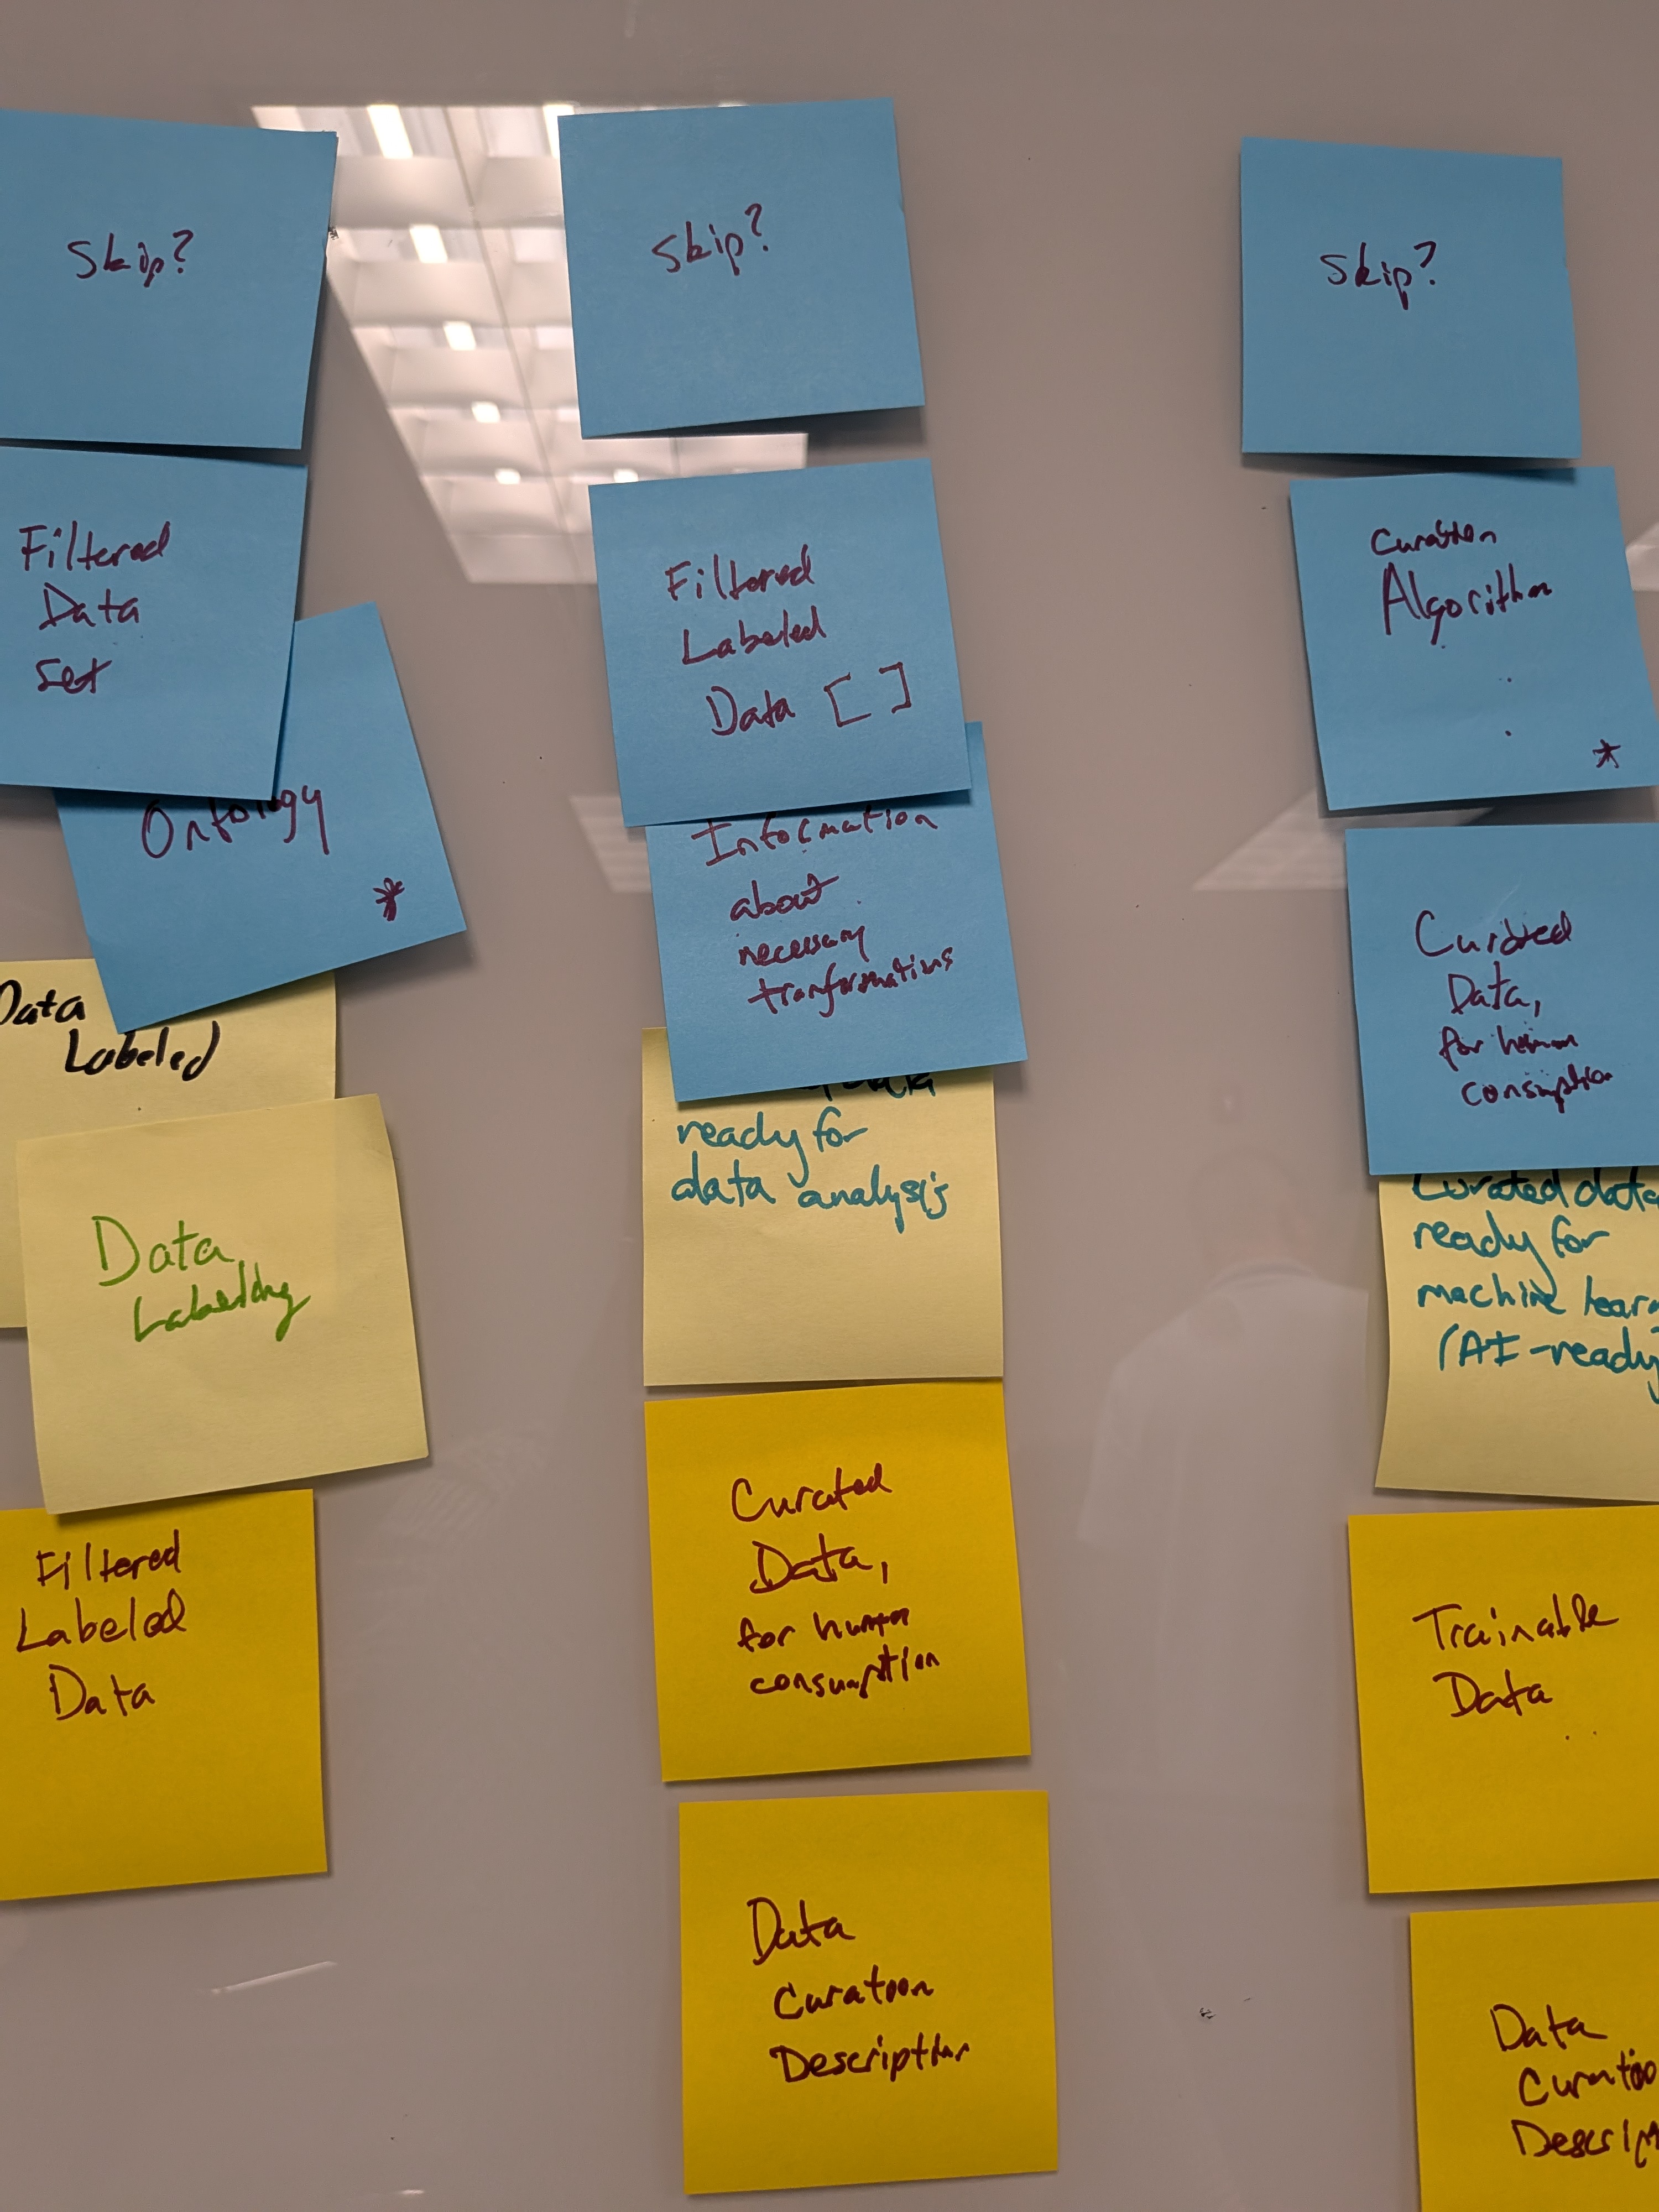 Skip?
Filtered
Data
Set
Ontology
*
Data
Labeled
Data
Labeling
Filtered
Labeled
Data
Skip?
Filtered
Labeled
Data [ ]
Information
about
necessary
tranformations
data
ready for
data analysis
Curated
Data,
for human
consumption
Data
Curation
Description
Skip?
Curation
Algorithm
*
Curated
Data,
for human
consumption
Curated data
ready for
machine lear
(AI-ready
Trainable
Data
Data
Curatio
Descrip